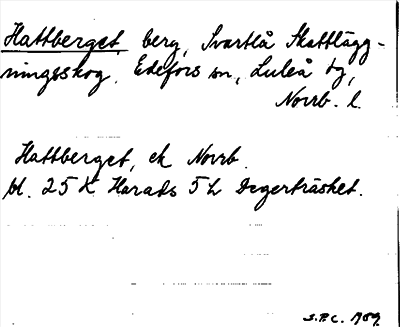 Hattberget, berg, Svartlå Skattlägg-
ningsskog, Edefors sn, Luleå tg,
Norrb. l.
Hattberget, ek Norrb.
bl. 25 K Harads 5 h Degerträsket.
S.P.C. 1959